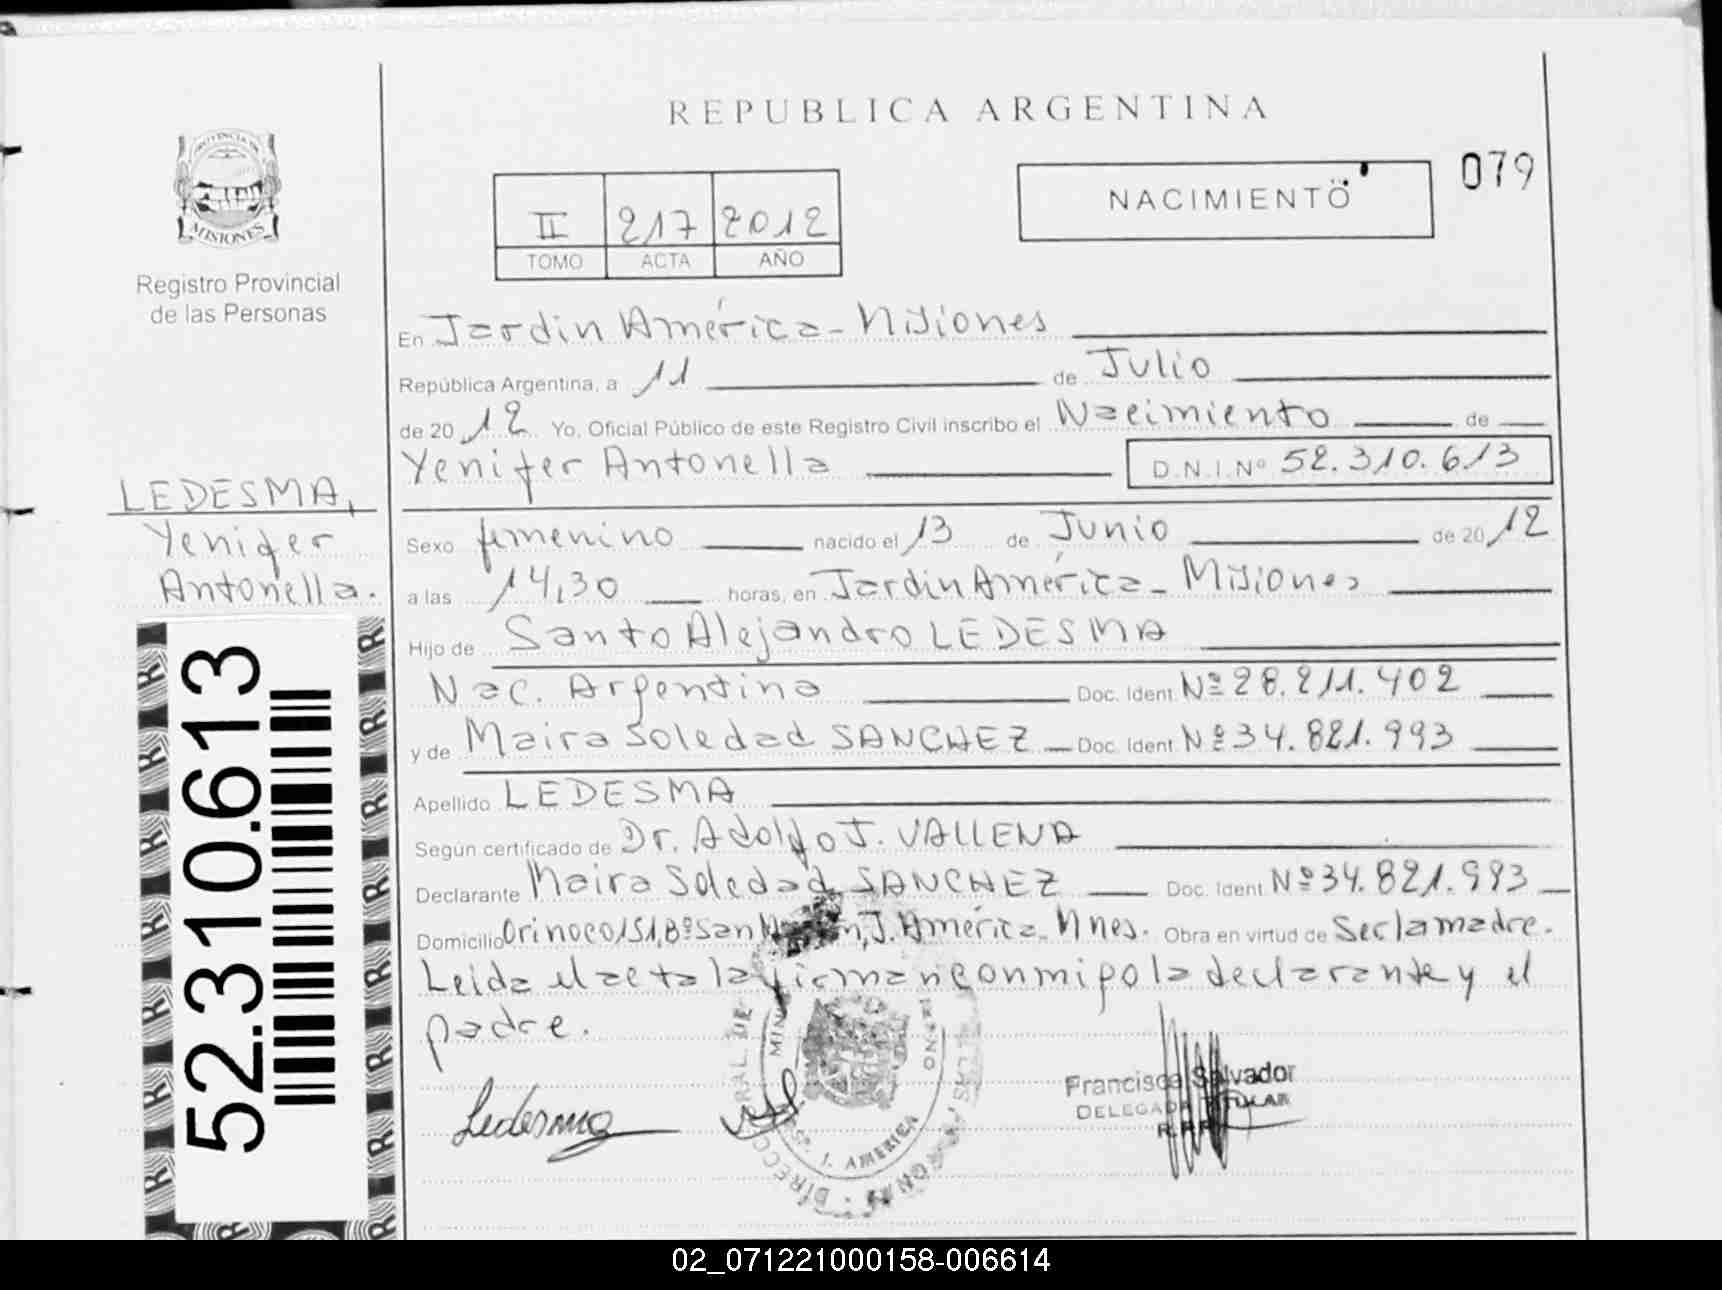 REPUBLICA ARGENTINA
079
PROVINCIA DE
MISIONES
Registro Provincial
de las Personas
II 217 2012
TOMO ACTA AÑO
NACIMIENTO
En Jardin América - Misiones
República Argentina, a 11 de Julio
de 2012 Yo, Oficial Público de este Registro Civil inscribo el Nacimiento de
Yenifer Antonella D.N.I. Nº 52.310.613
LEDESMA,
Yenifer
Antonella.
Sexo femenino nacido el 13 de Junio de 2012
a las 14,30 horas, en Jardin América - Misiones
Hijo de Santo Alejandro LEDESMA
Nac. Argentina Doc. Ident. Nº 28.211.402
y de Maira Soledad SANCHEZ Doc. Ident. Nº 34.821.993
Apellido LEDESMA
Según certificado de Dr. Adolfo J. VALLENA
Declarante Maira Soledad SANCHEZ Doc. Ident. Nº 34.821.993
Domicilio Orinoco 151, Bº San J. América - Mnes. Obra en virtud de Ser la madre.
Leida el acta la firman conmigo la declarante y el
padre.
Ledesma
Francisca Salvador
DELEGADA TITULAR
J. AMERICA
52.310.613
02_071221000158-006614